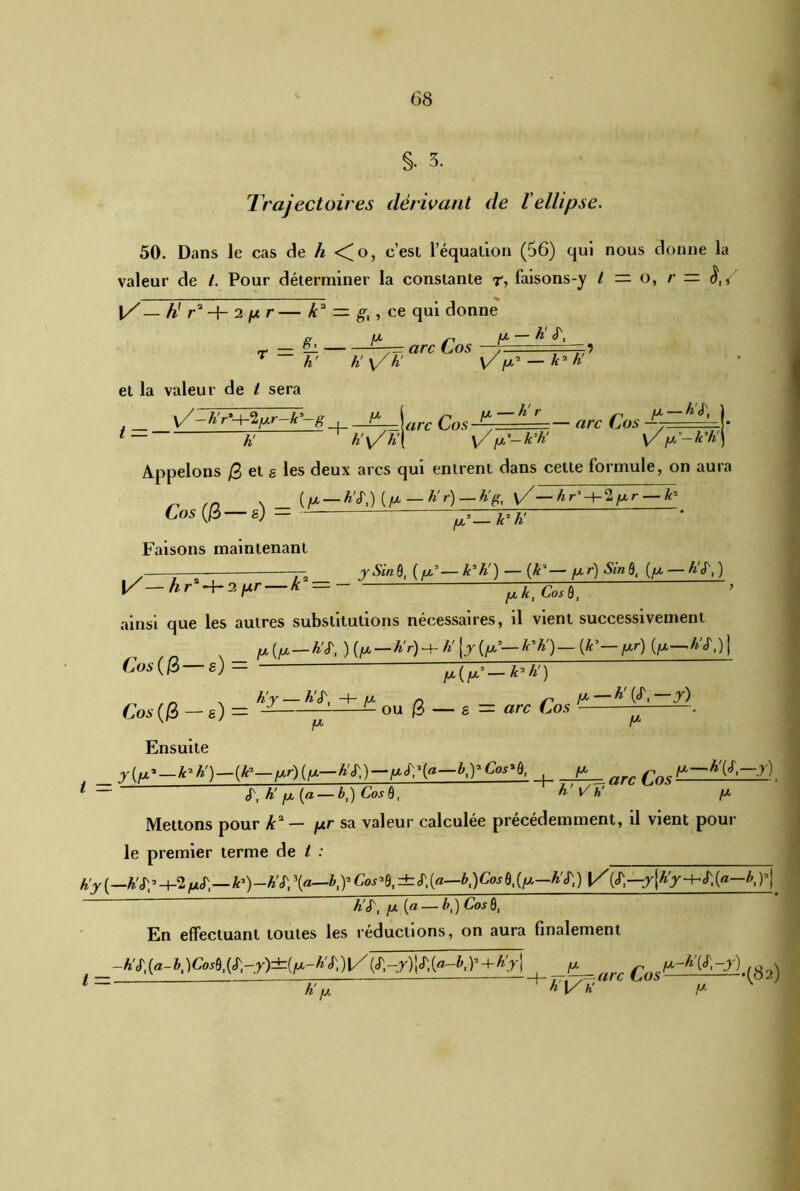 68
§. 3.
Trajectoires dérivant de l'ellipse.
50. Dans le cas de h < o, c'est l'équation (56) qui nous donne la
valeur de t. Pour déterminer la constante τ, faisons-y t = o, r = δ,,
√(— h' r² + 2 μ r — k²) = g, , ce qui donne
τ = g,/h' — μ/(h' √h') arc Cos (μ — h' δ,)/√(μ² — k² h'),
et la valeur de t sera
t = — (√(-h'r²+2μr-k²)-g)/h' + μ/(h'√h') {arc Cos (μ — h' r)/√(μ²-k²h') — arc Cos (μ — h'δ,)/√(μ²-k²h')}.
Appelons β et ε les deux arcs qui entrent dans cette formule, on aura
Cos (β — ε) = ((μ — h'δ,) (μ — h' r) — h'g, √(— h r² + 2 μr — k²))/(μ² — k² h').
Faisons maintenant
√(— h r² + 2 μr — k²) = — (y Sin θ, (μ² — k²h') — (k² — μr) Sin θ, (μ — h'δ,))/(μ k, Cos θ,),
ainsi que les autres substitutions nécessaires, il vient successivement
Cos (β — ε) = (μ (μ — h'δ, ) (μ — h'r) + h' {y (μ² — k²h') — (k² — μr) (μ — h'δ,)})/(μ (μ² — k² h'))
Cos (β — ε) = (h'y — h'δ, + μ)/μ ou β — ε = arc Cos (μ — h' (δ, — y))/μ.
Ensuite
t = (y(μ² — k² h') — (k² — μr) (μ — h'δ,) — μδ,²(a — b,)² Cos²θ,)/(δ, h' μ (a — b,) Cos θ,) + μ/(h' √h') arc Cos (μ — h'(δ, — y))/μ.
Mettons pour k² — μr sa valeur calculée précédemment, il vient pour
le premier terme de t :
(h'y (—h'δ,² + 2 μδ, — k²) — h'δ,³(a—b,)² Cos²θ, ± δ,(a—b,)Cos θ,(μ—h'δ,) √((δ,—y{h'y + δ,(a—b,)²}))/(h'δ, μ (a — b,) Cos θ,)
En effectuant toutes les réductions, on aura finalement
t = (-h'δ,(a-b,)Cosθ,(δ,-y) ± (μ-h'δ,)√((δ,-y){δ,(a-b,)² + h'y}))/(h' μ) + μ/(h' √h') arc Cos (μ-h'(δ,-y))/μ.(82)